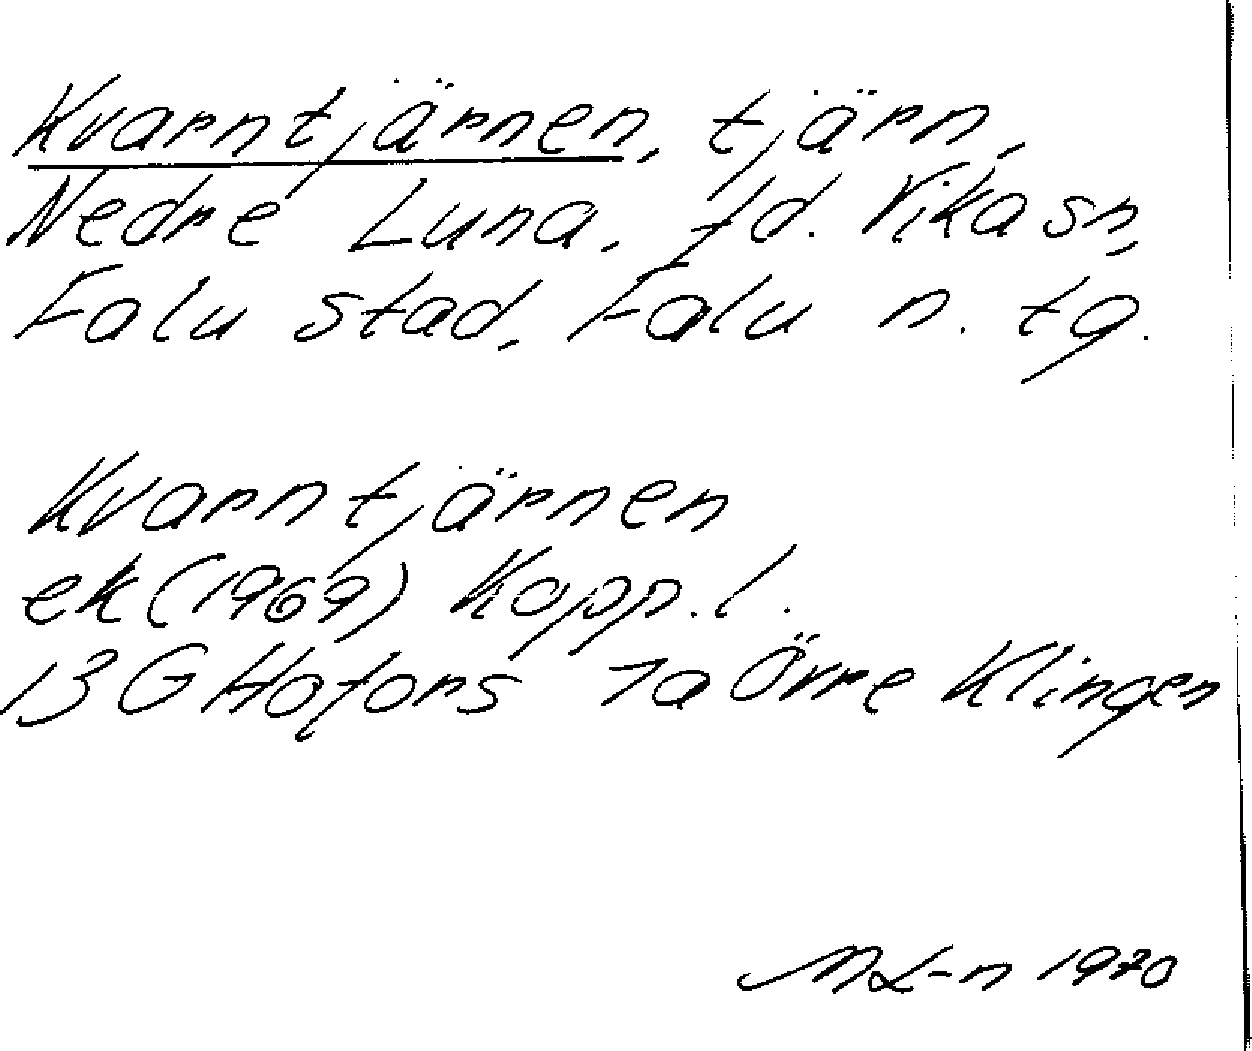 Kvarntjärnen, tjärn,
Nedre Luna, fd. Vika sn,
Falu stad, Falu n. tg.
Kvarntjärnen
ek (1969) Kopp. l.
13 G Hofors 7a Övre Klingen
ML-n 1970